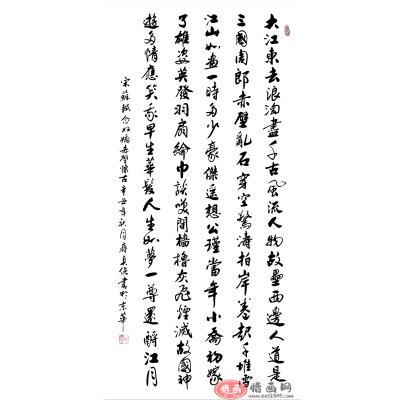 大江東去浪淘盡千古風流人物故壘西邊人道是
三國周郎赤壁亂石穿空驚濤拍岸卷起千堆雪
江山如畫一時多少豪傑遥想公瑾當年小喬初嫁
了雄姿英發羽扇綸巾談笑間檣櫓灰飛煙滅故國神
遊多情應笑我早生華髮人生如夢一尊還酹江月
宋蘇軾念奴嬌赤壁懷古辛丑年秋月 書於京華
惜画网